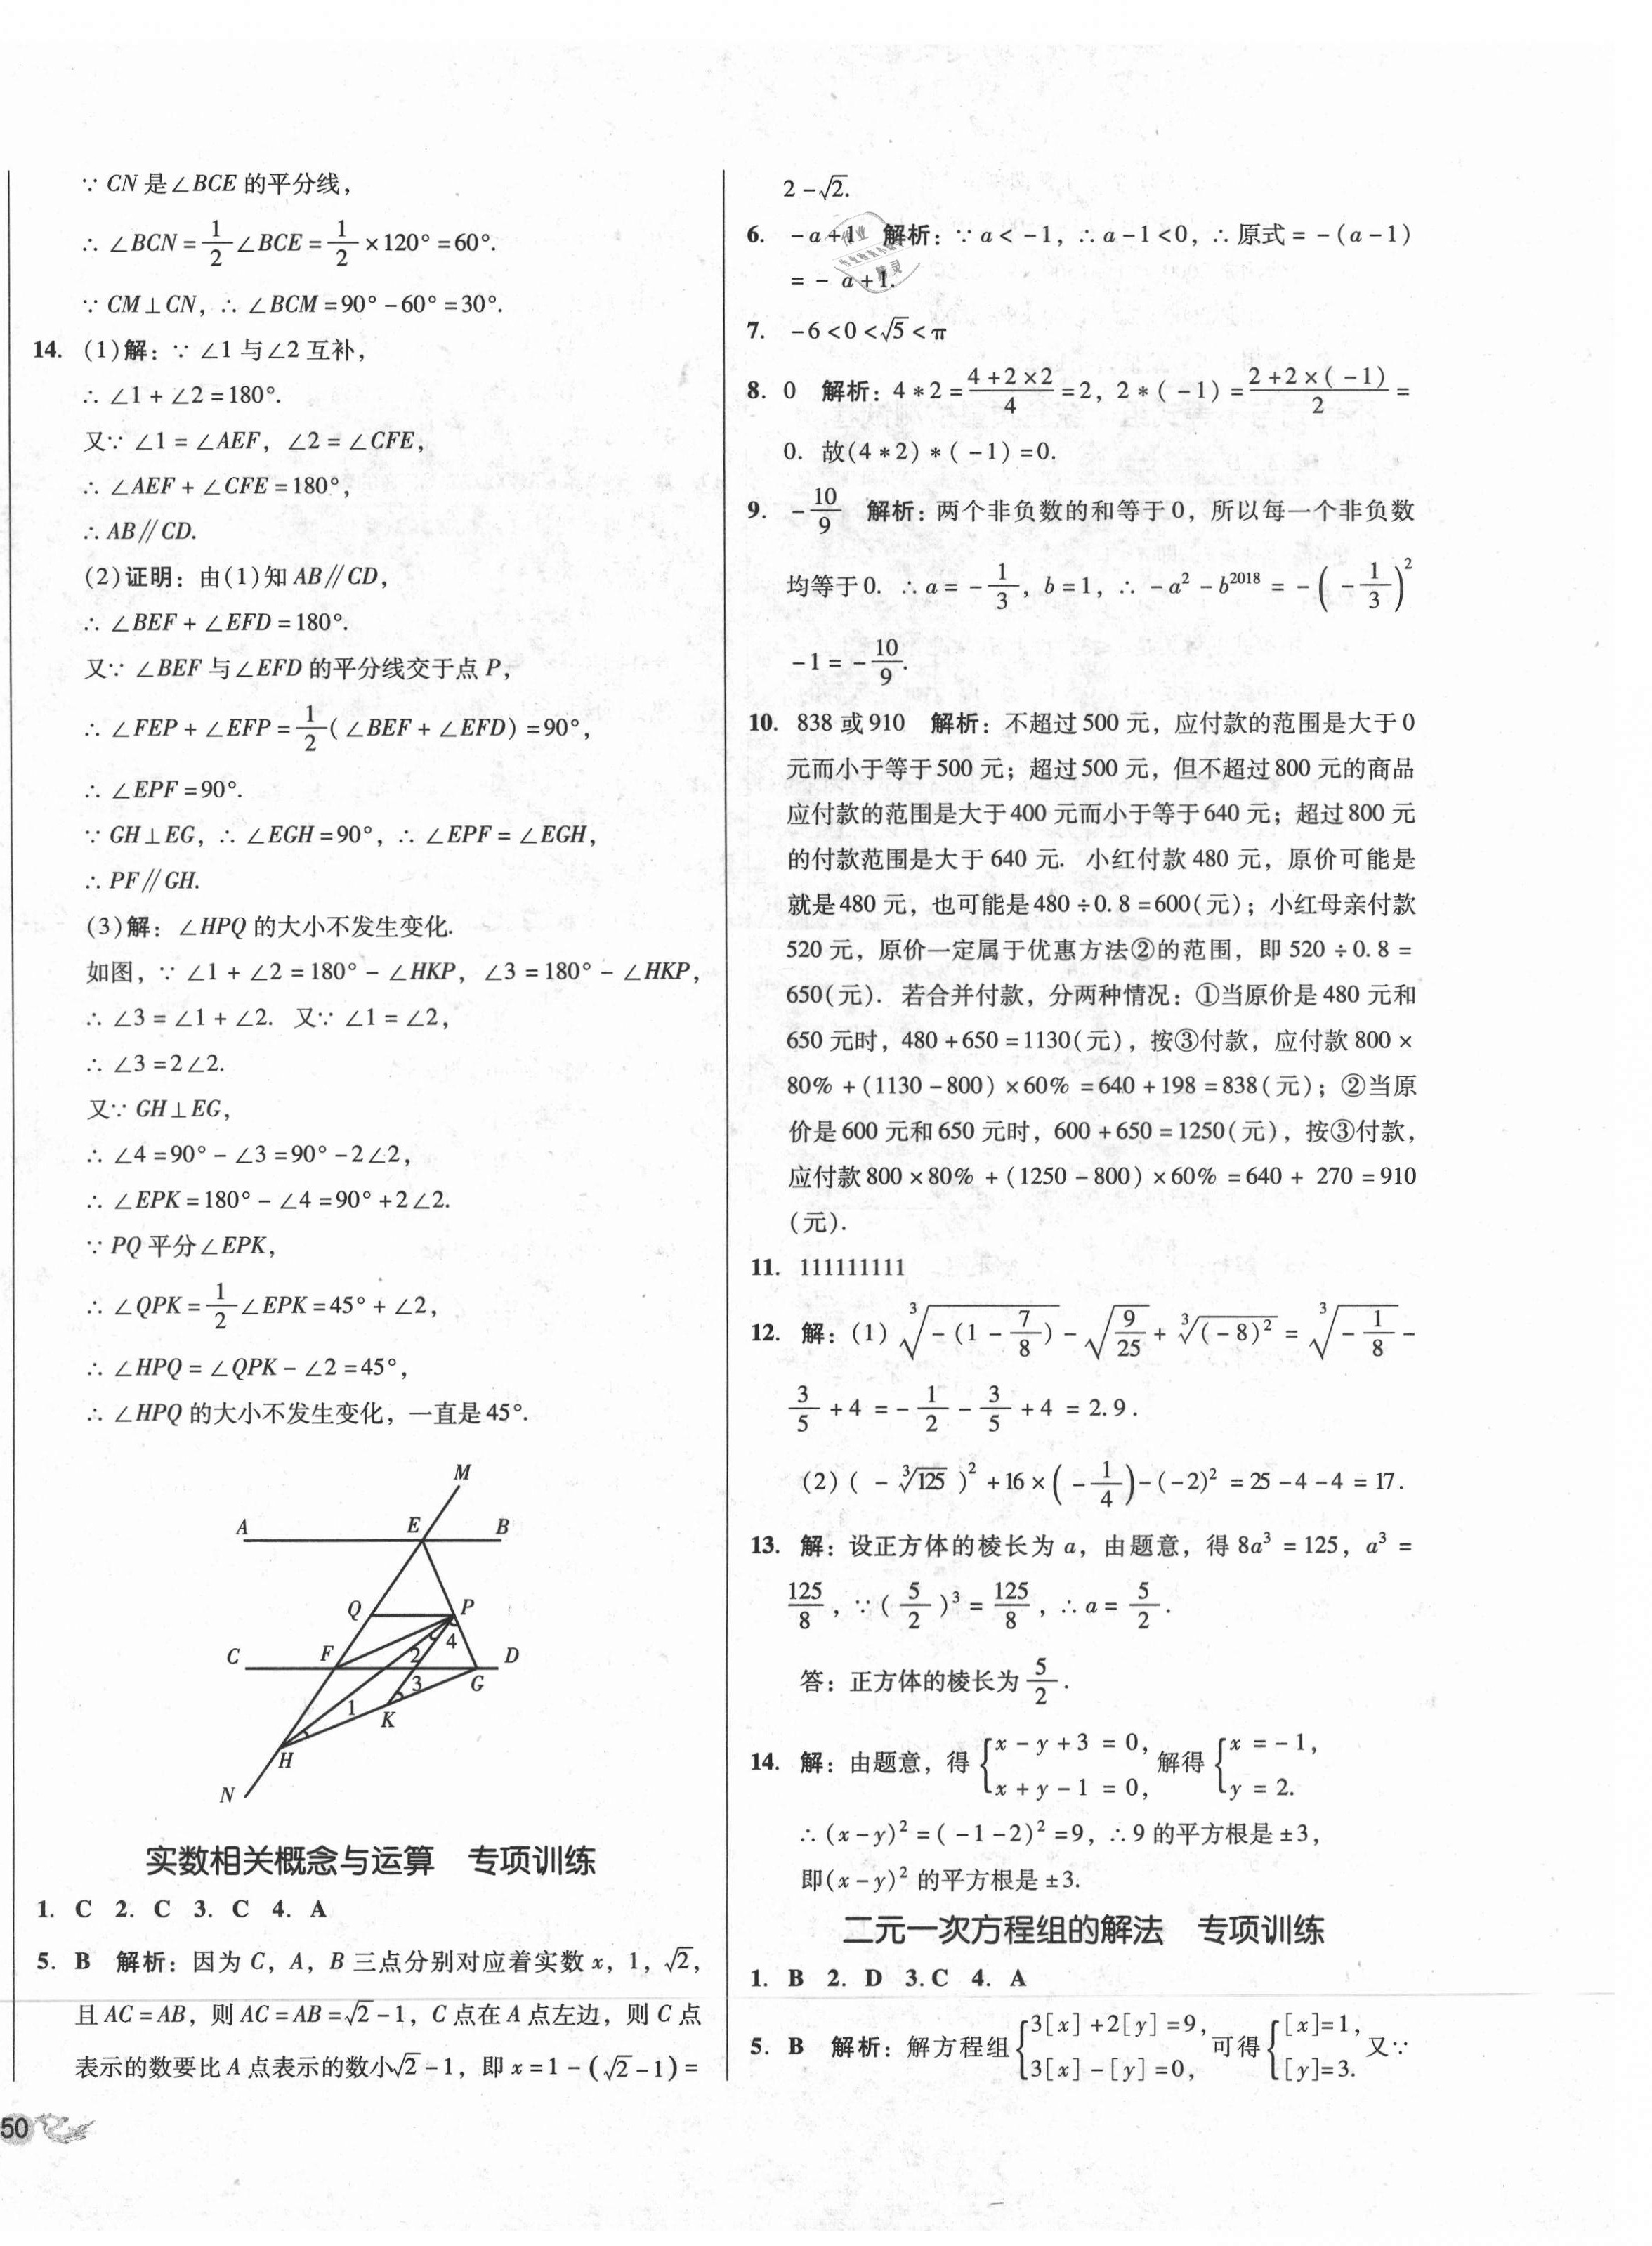 ∵ CN 是∠BCE 的平分线，
∴ ∠BCN = 1/2 ∠BCE = 1/2 × 120° = 60°.
∵ CM⊥CN，∴ ∠BCM = 90° - 60° = 30°.
14. (1)解：∵ ∠1 与∠2 互补，
∴ ∠1 + ∠2 = 180°.
又∵ ∠1 = ∠AEF，∠2 = ∠CFE，
∴ ∠AEF + ∠CFE = 180°，
∴ AB∥CD.
(2)证明：由(1)知 AB∥CD，
∴ ∠BEF + ∠EFD = 180°.
又∵ ∠BEF 与∠EFD 的平分线交于点 P，
∴ ∠FEP + ∠EFP = 1/2 ( ∠BEF + ∠EFD) = 90°，
∴ ∠EPF = 90°.
∵ GH⊥EG，∴ ∠EGH = 90°，∴ ∠EPF = ∠EGH，
∴ PF∥GH.
(3)解：∠HPQ 的大小不发生变化.
如图，∵ ∠1 + ∠2 = 180° - ∠HKP，∠3 = 180° - ∠HKP，
∴ ∠3 = ∠1 + ∠2. 又∵ ∠1 = ∠2，
∴ ∠3 = 2∠2.
又∵ GH⊥EG，
∴ ∠4 = 90° - ∠3 = 90° - 2∠2，
∴ ∠EPK = 180° - ∠4 = 90° + 2∠2.
∵ PQ 平分∠EPK，
∴ ∠QPK = 1/2 ∠EPK = 45° + ∠2，
∴ ∠HPQ = ∠QPK - ∠2 = 45°，
∴ ∠HPQ 的大小不发生变化，一直是 45°.
M
A E B
Q P
4
C F 2 D
3 G
1 K
H
N
实数相关概念与运算 专项训练
1. C 2. C 3. C 4. A
5. B 解析：因为 C，A，B 三点分别对应着实数 x，1，√2，
且 AC = AB，则 AC = AB = √2 - 1，C 点在 A 点左边，则 C 点
表示的数要比 A 点表示的数小√2 - 1，即 x = 1 - (√2 - 1) =
50
2 - √2.
6. - a + 1 解析：∵ a < - 1，∴ a - 1 < 0，∴ 原式 = - (a - 1)
= - a + 1.
7. - 6 < 0 < √5 < π
8. 0 解析：4 * 2 = (4 + 2 × 2)/4 = 2，2 * ( - 1) = (2 + 2 × ( - 1))/2 =
0. 故(4 * 2) * ( - 1) = 0.
9. - 10/9 解析：两个非负数的和等于 0，所以每一个非负数
均等于 0. ∴ a = - 1/3，b = 1，∴ - a² - b²⁰¹⁸ = - ( - 1/3 )²
- 1 = - 10/9.
10. 838 或 910 解析：不超过 500 元，应付款的范围是大于 0
元而小于等于 500 元；超过 500 元，但不超过 800 元的商品
应付款的范围是大于 400 元而小于等于 640 元；超过 800 元
的付款范围是大于 640 元. 小红付款 480 元，原价可能是
就是 480 元，也可能是 480 ÷ 0.8 = 600(元)；小红母亲付款
520 元，原价一定属于优惠方法②的范围，即 520 ÷ 0.8 =
650(元). 若合并付款，分两种情况：①当原价是 480 元和
650 元时，480 + 650 = 1130(元)，按③付款，应付款 800 ×
80% + (1130 - 800) × 60% = 640 + 198 = 838(元)；②当原
价是 600 元和 650 元时，600 + 650 = 1250(元)，按③付款，
应付款 800 × 80% + (1250 - 800) × 60% = 640 + 270 = 910
(元).
11. 111111111
12. 解：(1) ∛(- (1 - 7/8)) - √(9/25) + ∛(( - 8)²) = ∛(- 1/8) -
3/5 + 4 = - 1/2 - 3/5 + 4 = 2.9.
(2) ( - ∛125 )² + 16 × ( - 1/4 ) - (-2)² = 25 - 4 - 4 = 17.
13. 解：设正方体的棱长为 a，由题意，得 8a³ = 125，a³ =
125/8，∵ ( 5/2 )³ = 125/8，∴ a = 5/2.
答：正方体的棱长为 5/2.
14. 解：由题意，得 {x - y + 3 = 0， x + y - 1 = 0， 解得 {x = - 1， y = 2.
∴ (x - y)² = ( - 1 - 2)² = 9，∴ 9 的平方根是 ±3，
即(x - y)² 的平方根是 ±3.
二元一次方程组的解法 专项训练
1. B 2. D 3. C 4. A
5. B 解析：解方程组 {3[x] + 2[y] = 9， 3[x] - [y] = 0， 可得 {[x] = 1， [y] = 3. 又∵